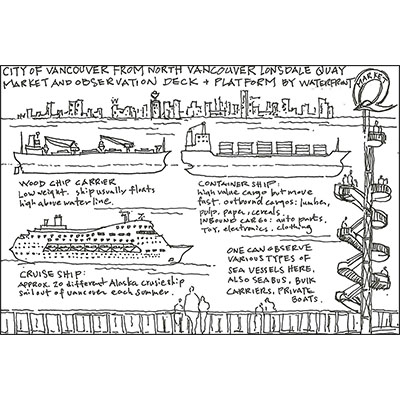 CITY OF VANCOUVER FROM NORTH VANCOUVER LONSDALE QUAY
MARKET AND OBSERVATION DECK + PLATFORM BY WATERFRONT
MARKET
Q
WOOD CHIP CARRIER
Low weight. ship usually floats
high above water line.
CONTAINER SHIP:
high value cargo but move
fast. outbound cargos: lumber,
pulp, paper, cereals.
INBOUND CARGO: auto parts,
Toy, electronics. clothing
CRUISE SHIP:
approx. 20 different Alaska cruise ship
sail out of vancover each summer.
ONE CAN OBSERVE
VARIOUS TYPES OF
SEA VESSELS HERE,
ALSO SEABUS, BULK
CARRIERS, PRIVATE
BOATS.